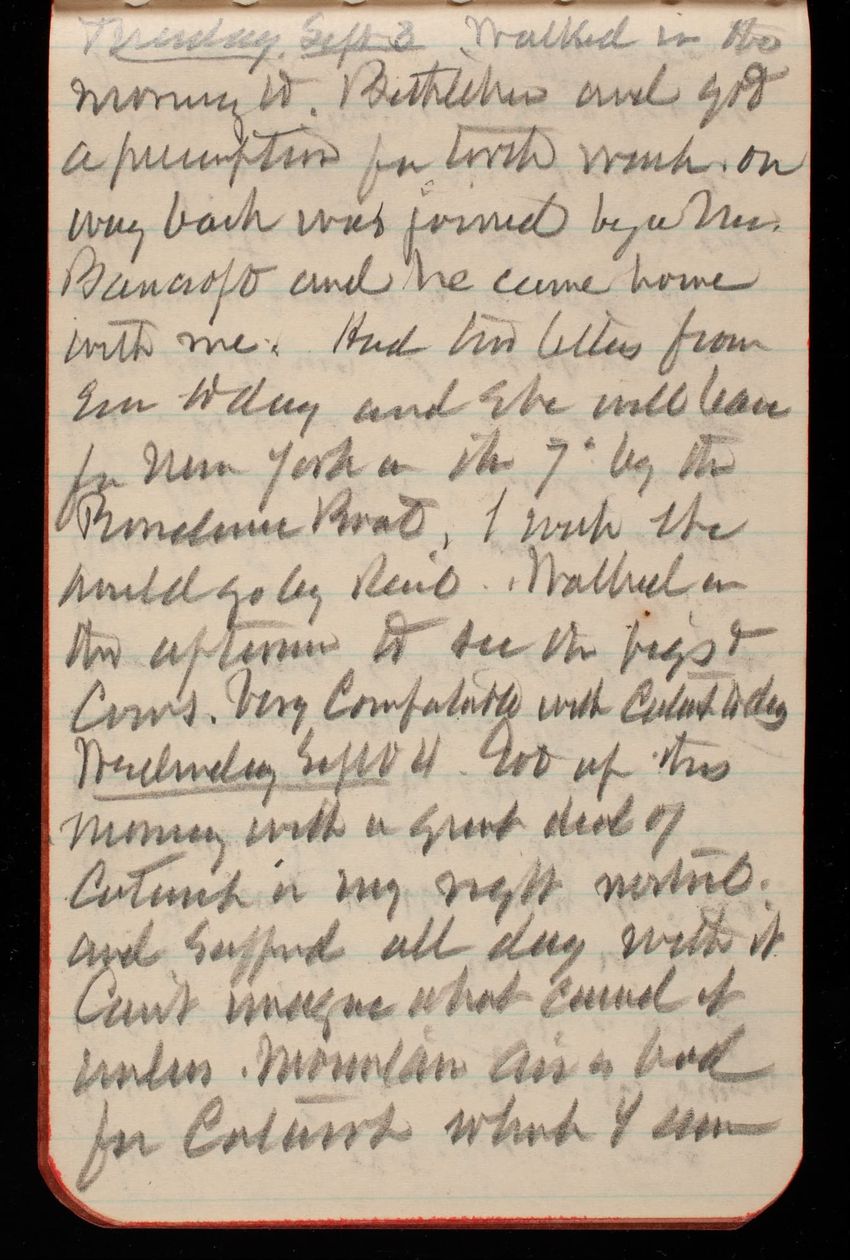 Tuesday, Sept 3 Walked in the
morning to. Bethlehem and got
a prescription for tooth wash. on
way back was joined by a Mr.
Bancroft and he came home
with me. Had two letters from
Em today and she will leave
for New York on the 7" by the
Providence Boat, I wish she
would go by Rail. Walked in
the afternoon to see the pigs &
Cows. Very Comfortable with Catarrh to day
Wednesday Sept 4 Got up this
morning with a great deal of
Catarrh in my right nostril.
and Suffered all day with it
Can't imagine what caused it
unless Mountain Air is bad
for Catarrh which I am